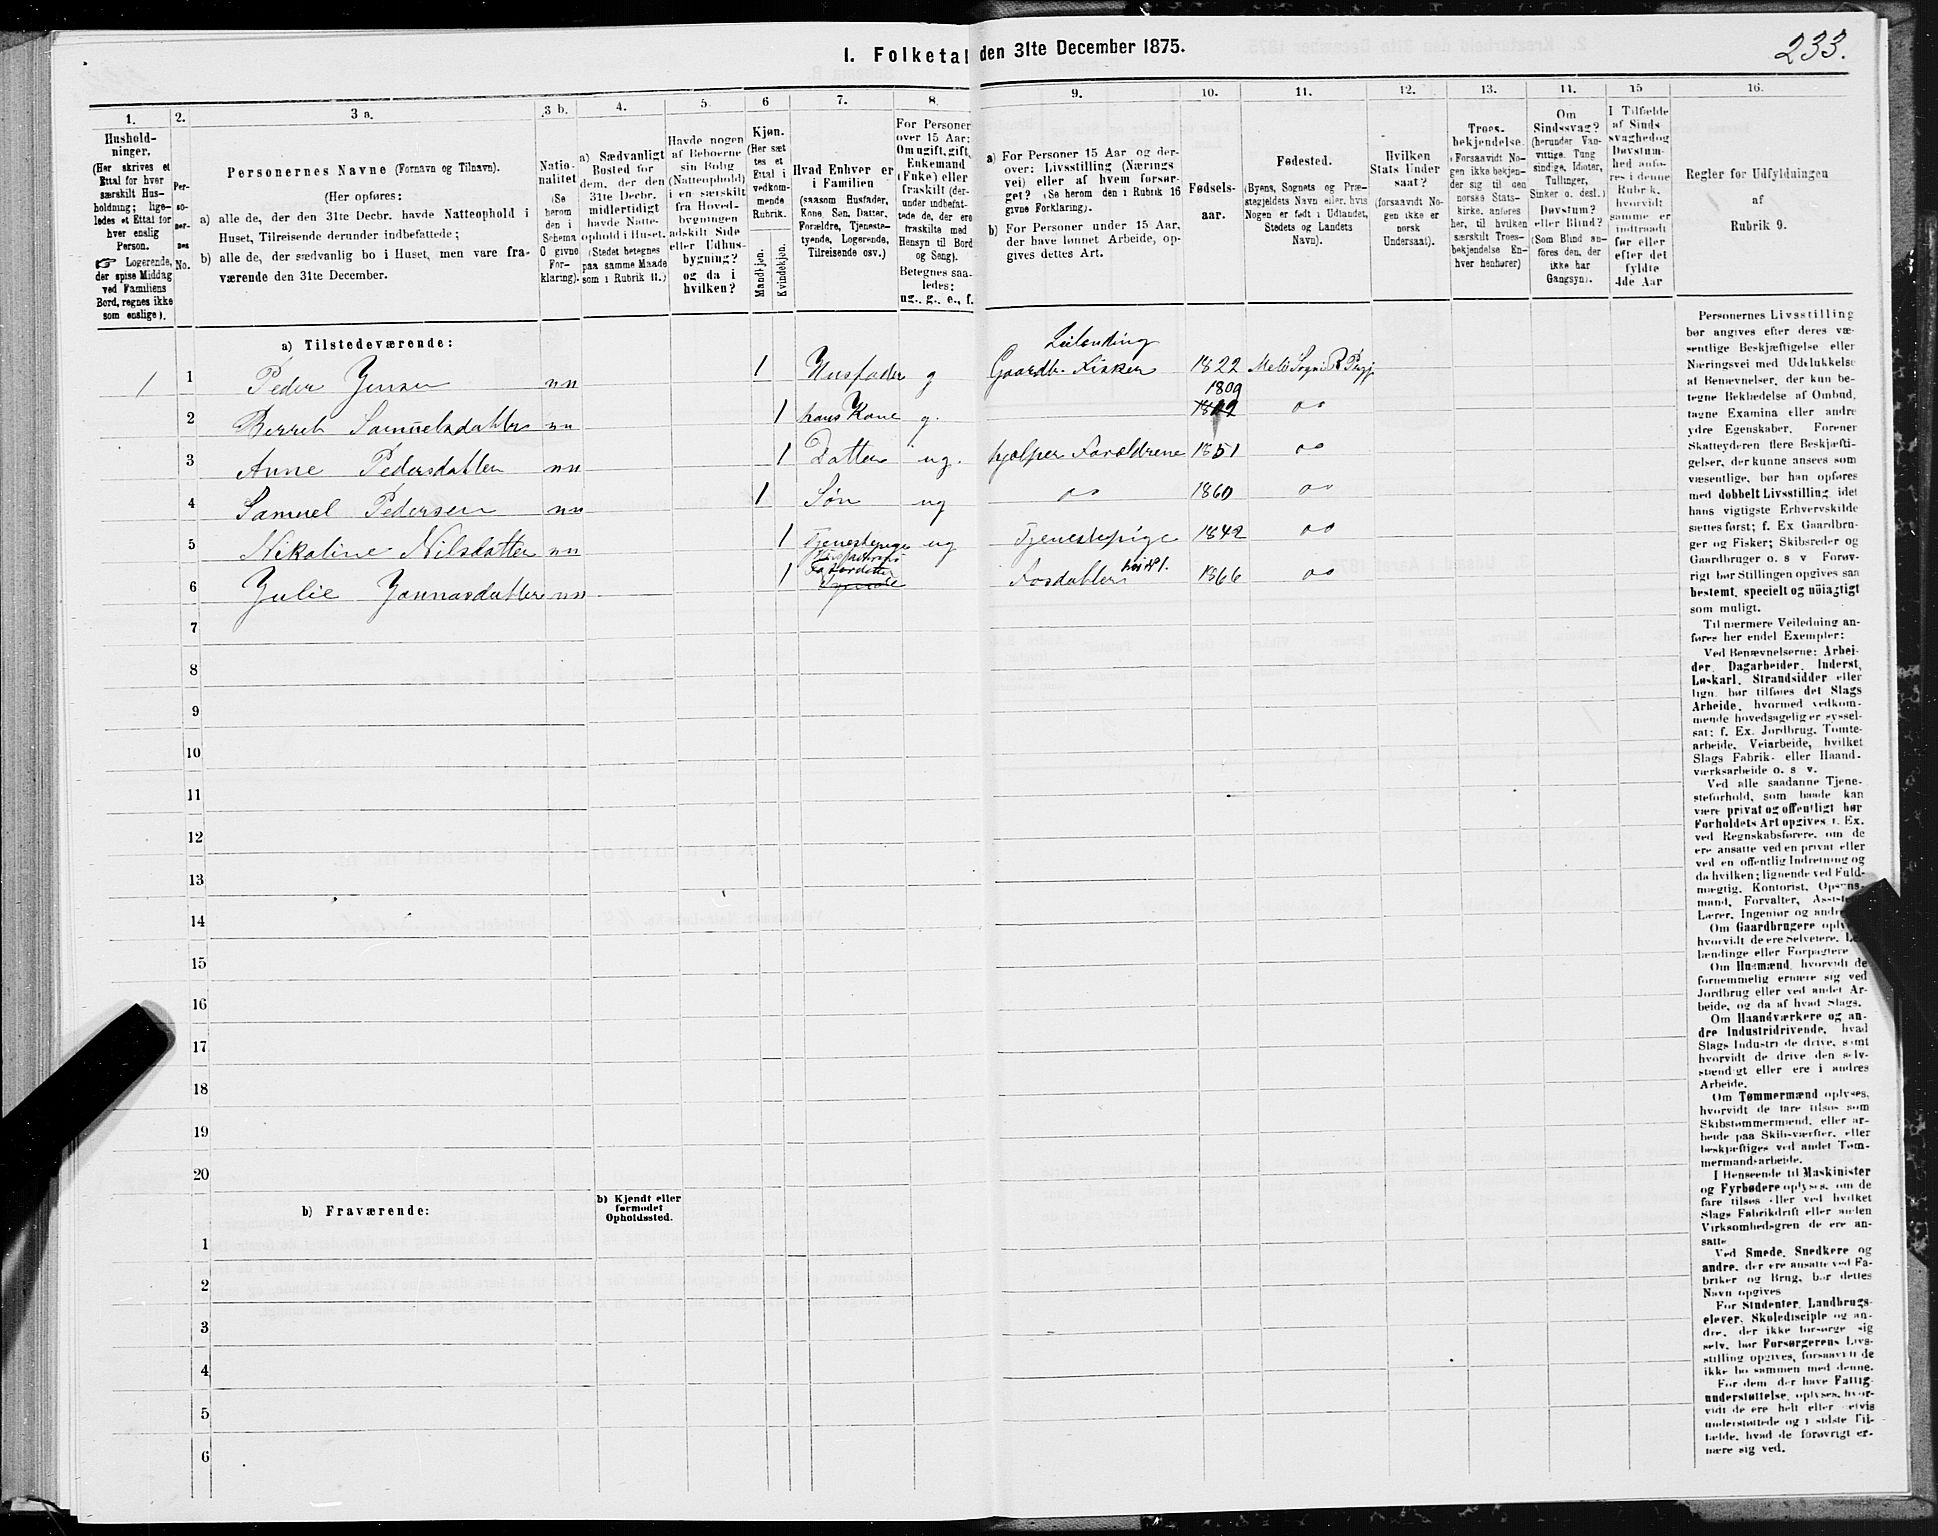 233.
I. Folketal den 31te December 1875.
1. 2. 3 a. 3 b. 4. 5. 6 7. 8. 9. 10. 11. 12. 13. 14. 15 16.
Hushold-
ninger.
(Her skrives et
Ettal for hver
særskilt Hus-
holdning; lige-
ledes et Ettal for
hver enslig
Person.
Logerende,
der spise Middag
ved Familiens
Bord, regnes ikke
som enslige).
Per-
so-
ner-
nes
No.
Personernes Navne (Fornavn og Tilnavn).
(Her opføres:
a) alle de, der den 31te Decbr. havde Natteophold i
Huset, Tilreisende derunder indbefattede;
b) alle de, der sædvanlig bo i Huset, men vare fra-
værende den 31te December.
Natio-
nalitet
(Se
herom
den i
Schema
C givne
For-
klaring).
a) Sædvanligt
Bosted for
dem, der den
31te Decbr.
midlertidigt
havde Natte-
ophold i Huset.
(Stedet betegnes
paa samme Maade
som i Rubrik 11.)
Havde nogen
af Beboerne
sin Bolig
(Natteophold)
i en særskilt
fra Hoved-
bygningen
adskilt Side
eller Udhus-
bygning?
og da i
hvilken?
Kjøn.
(Her sæt
tes et
Ettal i
vedkom-
mende
Rubrik.
Mandkjøn.
Kvindekjøn.
Hvad Enhver er
i Familien
(saasom Husfader,
Kone, Søn, Datter,
Forældre, Tjeneste-
tyende, Logerende,
Tilreisende osv.)
For Personer
over 15 Aar:
Om ugift, gift,
Enkemand
(Enke) eller
fraskilt (der-
under indbefat-
tede de, der ere
fraskilte med
Hensyn til Bord
og Seng).
Betegnes saa-
ledes:
ug., g., e., f.
a) For Personer 15 Aar og der-
over: Livsstilling (Nærings-
vei) eller af hvem forsør-
get? (Se herom den i Rubrik 16
givne Forklaring).
b) For Personer under 15 Aar,
der have lønnet Arbeide, op-
gives dettes Art.
Fødsels-
aar.
Fødested.
(Byens, Sognets og Præ-
stegjeldets Navn eller, hvis
Nogen er født i Udlandet,
Stedets og Landets
Navn).
Hvilken
Stats Under
saat?
(forsaavidt No-
gen ikke er
norsk
Undersaat).
Troes-
bekjendelse.
(Forsaavidt No-
gen ikke bekjen-
der sig til den
norske Stats-
kirke, anføres
her, til hvilken
særskilt Troes-
bekjendelse En-
hver henhører)
Om
Sindssvag?
(herunder Van-
vittige, Tung
sindige, Idioter,
Tullinger,
Sinker o. desl.)
Døvstum?
eller Blind?
(Som Blind an-
føres den, der
ikke har
Gangsyn).
I Tilfælde
af Sinds-
svaghed og
Døvstum-
hed anfø-
res i denne
Rubrik,
hvorvidt
samme er
indtraadt
før eller
efter det
fyldte
4de Aar
Regler for Udfyldningen
af
Rubrik 9.
a) Tilstedeværende:
Leilending
1 1 Peder Jensen nn 1 Husfader g Gaardb. Fisker 1822 Melø Sogn R Pgj
1809
2 Berret Samuelsdatter nn 1 hans Kone g.
3 Anne Pedersdatter nn 1 Datter ug. hjelper Forældrene 1851
4 Samuel Pedersen nn 1 Søn ug 1860
5 Nikoline Nilsdatter nn 1 Tjenestepige ug Tjenestepige 1842
6 Julie Jonnasdatter nn 1 Fosdatter 1866
7
8
9
10
11
12
13
14
15
16
17
18
19
20
b) Fraværende:
b) Kjendt eller
formodet
Opholdssted.
1
2
3
4
5
6
Personernes Livsstilling
bør angives efter deres væ-
sentlige Beskjæftigelse eller
Næringsvei med Udelukkelse
af Benævnelser, der kun be-
tegne Beklædelse af Ombud,
tagne Examina eller andre
ydre Egenskaber. Forener
Skatteyderen flere Beskjæfti-
gelser, der kunne ansees som
væsentlige, bør han opføres
med dobbelt Livsstilling idet
hans vigtigste Erhvervskilde
sættes først; f. Ex Gaardbru-
ger og Fisker; Skibsreder og
Gaardbruger o. s v Forøv-
rigt bør Stillingen opgives saa
bestemt, specielt og nöiagtigt
som muligt.
Til nærmere Veiledning an-
føres her endel Exempler:
Ved Benævnelserne: Arbei-
der, Dagarbeider, Inderst,
Løskarl, Strandsidder eller
lign. bør tilføres det Slags
Arbeide, hvormed vedkom-
mende hovedsagelig er syssel-
sat; f. Ex. Jordbrug, Tomte-
arbeide, Veiarbeide, hvilket
Slags Fabrik- eller Haand-
værksarbeide o. s v.
Ved alle saadanne Tjene-
steforhold, som baade kan
være privat og offentligt bør
Forholdets Art opgives, f. Ex.
ved Regnskabsførere, om de
ere ansatte ved en privat eller
ved en offentlig Indretning og
da hvilken; lignende ved Fuld-
mægtig, Kontorist, Opsyns-
mand, Forvalter,
Lærer, Ingeniør og
Om Gaardbrugere
hvorvidt de ere Selveiere,
lændinge eller Forpagtere
Om Husmænd, hvorvidt de
fornemmelig ernære sig ved
Jordbrug eller ved andet Ar-
beide, og da af hvad Slags.
Om Haandværkere og an-
dre Industridrivende, hvad
Slags Industri de drive, samt
hvorvidt de drive den selv-
stændigt eller ere i andres
Arbeide.
Om Tømmermænd oplyses,
hvorvidt de fare tilsøs som
Skibstømmermænd, eller ar-
beide paa Skibsværfter, eller
beskjæftiges ved andet Tøm-
mermandsarbeide.
I Henseende til Maskinister
og Fyrbødere oplyses, om de
fare tilsøs eller ved hvilket
Slags Fabrikdrift eller anden
Virksomhedsgren de ere an-
satte
Ved Smede, Snedkere og
andre, der ere ansatte ved Fa-
briker og Brug, bør dettes
Navn opgives
For Studenter, Landbrugs-
elever, Skoledisciple og an-
dre, der ikke forsørge sig
selv, bør Forsørgerens Livs-
stilling opgives, forsaavidt de
ikke bo sammen med denne.
For dem, der have Fattig-
understøttelse, oplyses, hvor-
vidt de ere helt eller delvis
understøttede og i sidste Til-
fælde, hvad de forøvrigt er-
nære sig ved.